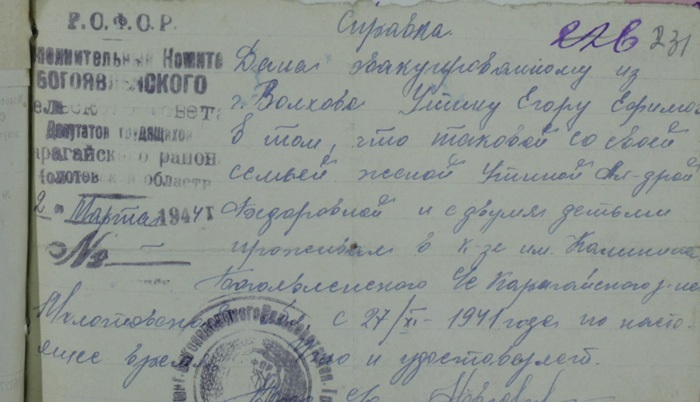 Р.С.Ф.С.Р.
Справка
226 231
сполнительный Комите
БОГОЯВЛЕНСКОГО
ельского Совета
Депутатов трудящихся
арагайского район
Молотовской област
2 " Марта 1944 г
№ —
Дана эвакуированному из
г. Волхова Утину Егору Ефимо
в том, что таковой со своей
семьей женой Утиной Ал-дрой
Федоровной и с двумя детьми
проживал в к-зе им. Калинина
Богоявленского с/с Карагайского р-на
Молотовской с 27/XI- 1941 года по насто
ящее время и удостоверяет.